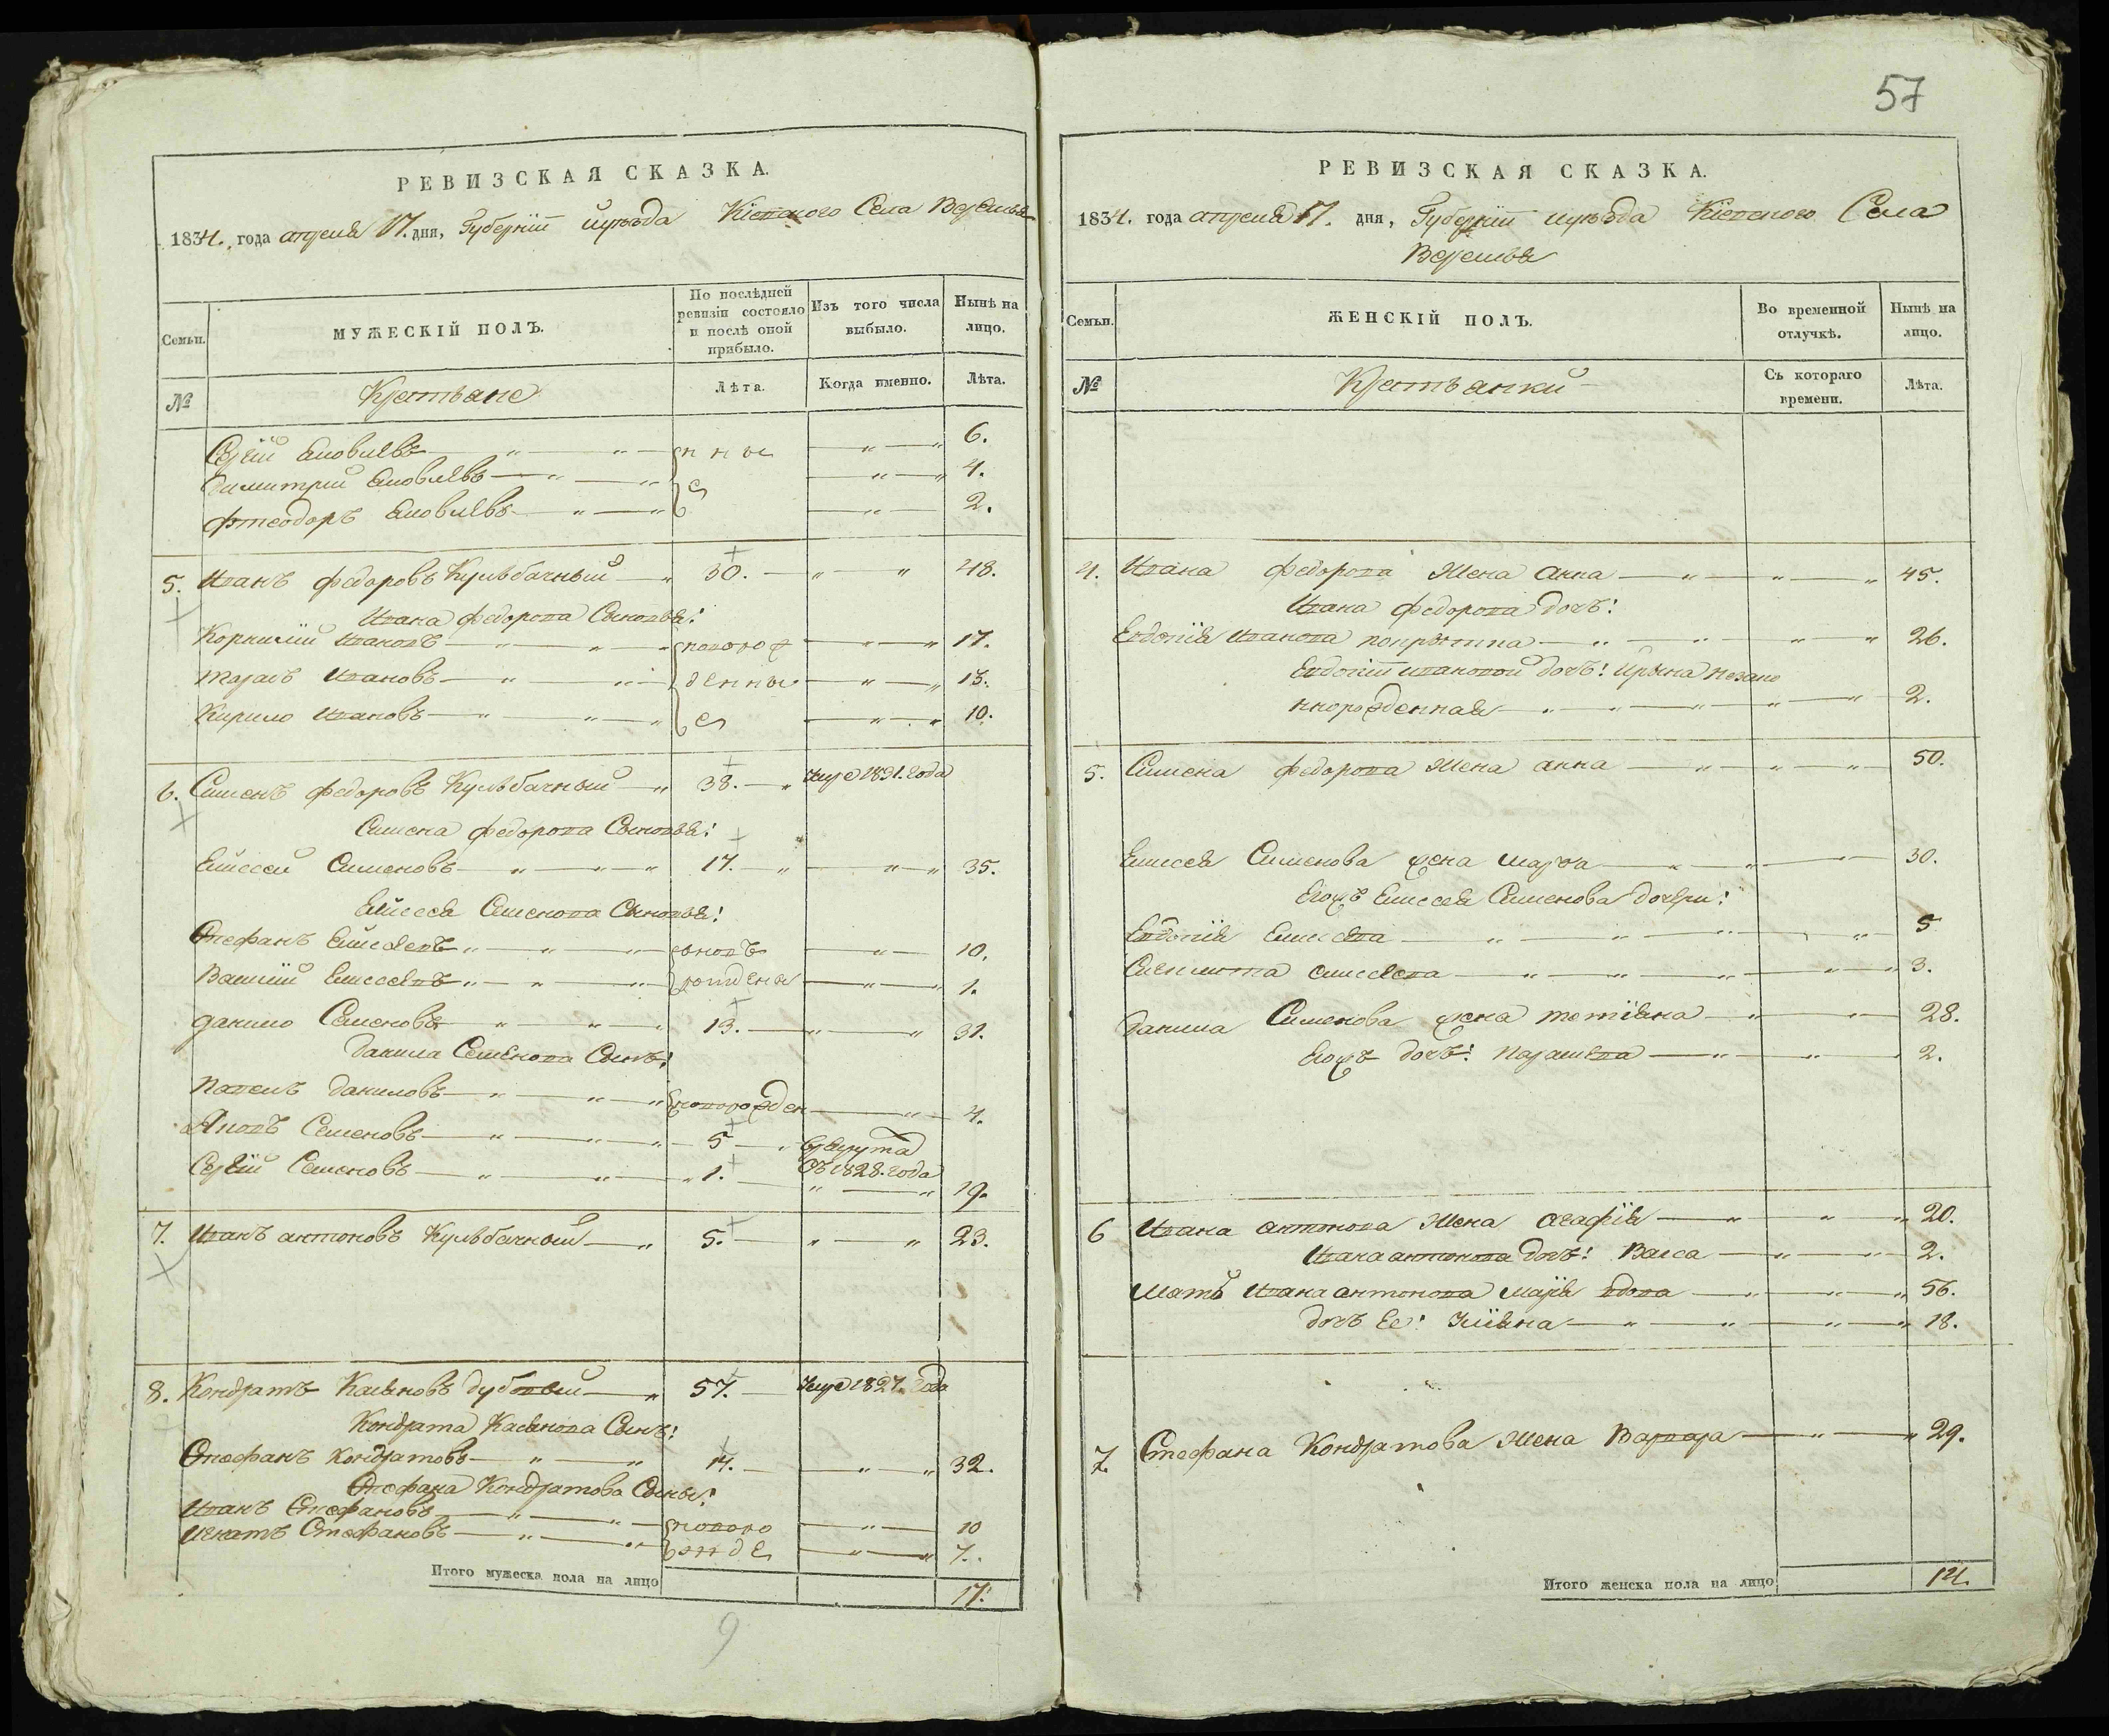 57
РЕВИЗСКАЯ СКАЗКА.
1834. года апреля 17. дня, Губернїи и уезда Кіевского Села Веремья
Семьи.
МУЖЕСКІЙ ПОЛЪ.
По послѣдней ревизіи состояло и послѣ оной прибыло.
Изъ того числа выбыло.
Нынѣ на лицо.
№
Крестьяне
Лѣта.
Когда именно.
Лѣта.
Сергій Яковлевъ 6.
Димитрий Яковлевъ 4.
Фтеодоръ Яковлевъ 2.
5. Иванъ Федоровъ Кульбачный 30. 48.
Ивана Федорова Сыновья:
Корнилій Ивановъ новорож 17.
Тарасъ Ивановъ денны 13.
Кирило Ивановъ е 10.
6. Симонъ Федоровъ Кульбачный 38. Умре 1831. года
Симена Федорова Сыновья:
Елисей Сименовъ 17. 35.
Елисея Семенова Сыновья:
Стефанъ Елисеевъ вновъ 10.
Василий Елисеевъ рожденны 1.
Данило Семеновъ 13. 31.
Данила Семенова Сынъ:
Павелъ Даниловъ новорожден 4.
Яковъ Семеновъ 5 Врекрута
Съ 1828. года
Сергій Семеновъ 1. 19.
7. Иванъ Антоновъ Кульбачный 5. 23.
8. Кондратъ Касяновъ Дубовый 57. Умре 1827. года
Кондрата Касянова Сынъ:
Стефанъ Кондратовъ 14. 32.
Стефана Кондратова Сыны:
Иванъ Стефановъ новоро 10
Игнатъ Стефановъ жде 7.
Итого мужеска пола на лицо 17.
9
РЕВИЗСКАЯ СКАЗКА.
1834. года апреля 17. дня, Губернїи и уезда Кіевского Села
Веремья
Семьи.
ЖЕНСКІЙ ПОЛЪ.
Во временной отлучкѣ.
Нынѣ на лицо.
№
Крестьянки
Съ котораго времени.
Лѣта.
4. Ивана Федорова Жена Анна 45.
Ивана Федорова дочь:
Евдокія Иванова покрытка 26.
Евдокіи Ивановой дочь: Ирына незако
ннорожденная 2.
5. Симена Федорова Жена Анна 50.
Елисея Сименова жена Марфа 30.
Егожъ Елисея Сименова дочери:
Евдокія Елисеева 5
Елисеева 3.
Данила Сименова жена Тетіяна 28.
Егожъ дочь: Парасковія 2.
6 Ивана Антонова Жена Агафія 20.
Ивана Антонова дочь: Васса 2.
Мать Ивана Антонова Марія вдова 56.
дочь Ее: Уліяна 18.
7. Стефана Кондратова Жена Варвара 29.
Итого женска пола на лицо 14.